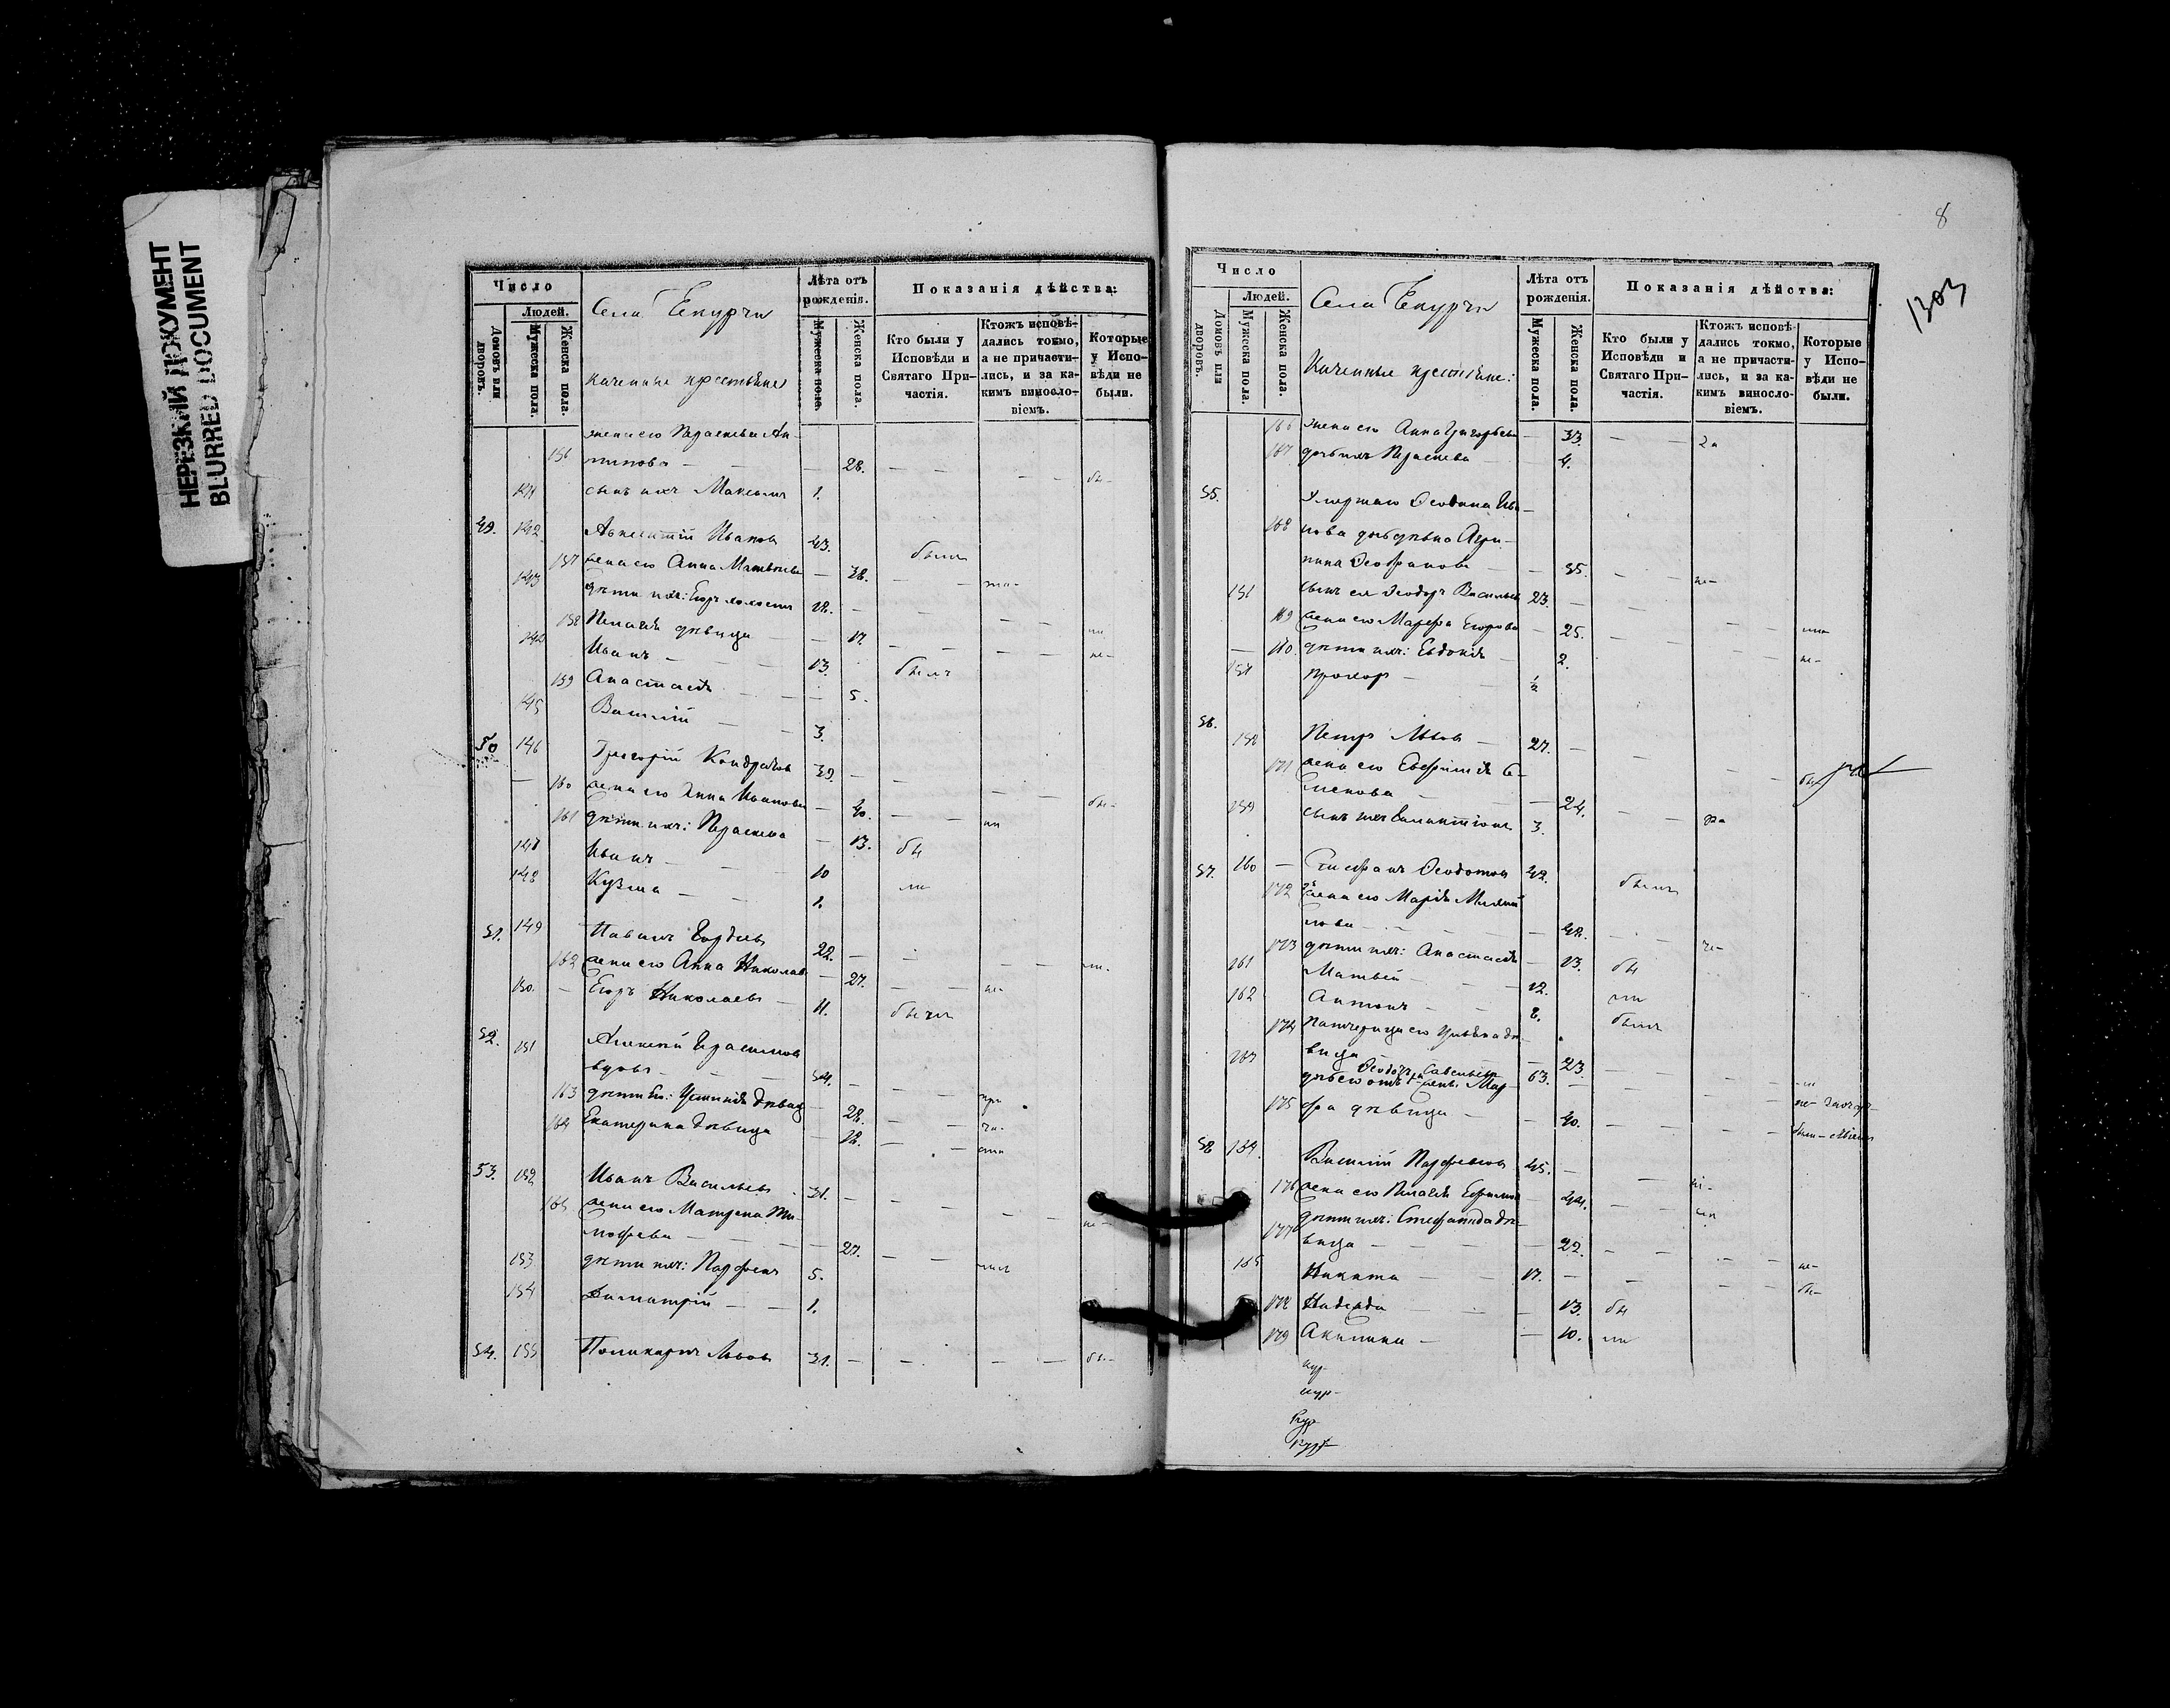 НЕРЕЗКИЙ ДОКУМЕНТ
BLURRED DOCUMENT
Число
Людей.
Домовъ или дворовъ.
Мужеска пола.
Женска пола.
Села Екурчи
казенные крестьяне
Лѣта отъ рожденія.
Мужеска пола.
Женска пола.
Показанія дѣйства:
Кто были у Исповѣди и Святаго При-частія.
Ктожъ исповѣ-дались токмо, а не причасти-лись, и за ка-кимъ винословіемъ.
Которые у Испо-вѣди не были.
156 жена его Параскева Ан-
типова — 28. — —
141 сынъ ихъ Максимъ 1.
49. 142 Авксентій Ивановъ 43. былъ
157 жена его Анна Матвѣева — 38. — —
143 дѣти ихъ: Егоръ холостъ 18. —
158 Пелагія дѣвица — 17. — —
144 Иванъ — 13. былъ
159 Анастасія — 5.
145 Василій — 3.
50 146 Григорій Кондратовъ 39. — —
160 жена его Анна Иванова — 40. — —
161 дѣти ихъ: Параскева — 13. бы
147 Иванъ — 10 ли
148 Кузма — 1.
51. 149 Павелъ Гордѣевъ 22. — —
162 жена его Анна Николаева — 27. — — не-
150. — Егоръ Николаевъ — 11. былъ
52. 151 Алексѣй Герасимовъ
вдовъ — 54. — —
163 дѣти его: Устинія дѣвица — 28. — —
164 Екатерина дѣвица — 18. — —
53. 152 Иванъ Васильевъ 31. — —
165 жена его Матрена Ти-
мофеева — 27. — —
153 дѣти ихъ: Парфенъ 5.
154 Димитрій — — 1.
54. 155 Поликарпъ Львовъ 31. — — — — бы-
8
1303
Число
Людей.
Домовъ или дворовъ.
Мужеска пола.
Женска пола.
Села Екурчи
Казенные крестьяне:
Лѣта отъ рожденія.
Мужеска пола.
Женска пола.
Показанія дѣйства:
Кто были у Исповѣди и Святаго При-частія.
Ктожъ исповѣ-дались токмо, а не причасти-лись, и за ка-кимъ винословіемъ.
Которые у Испо-вѣди не были.
166 жена его Анна Григорьева — 33. — —
167 дочь ихъ Параскева — 4.
55. Умершаго
168 нова дочь дѣвка Агри-
пина — 55. — — не-
156 сынъ ея Ѳеодоръ Васильевъ 23. —
169 жена его Марфа Егорова — 25. —
170. дѣти ихъ: Евдокія — 2. не-
157 Прохоръ — ½
56.
158 Петръ Львовъ — 27. —
171 жена его Евфимія Се-
менова — 24. — —
159 сынъ ихъ 3.
57. 160 — Стефанъ Ѳедотовъ 42. былъ
172 жена его Марія Михай
лова — 42. — —
173 дѣти ихъ: Анастасія — 13. бы
161 Матвей — 12. ли
162 Антонъ — 8. былъ
174 Падчерица его Ульяна дѣ-
вица — 23. — —
163 Ѳеодоръ Савельевъ 63. —
Мар-
175 фа дѣвица — 40. — —
58 164. Василій Парфеновъ 45. —
176 жена его Пелагія Ефимова — 44. — —
177 дѣти ихъ: Стефанида дѣ-
вица — 22. — —
165 Никита — 17. — —
178 Надежда — 13. бы
179 Акилина — — 10. ли